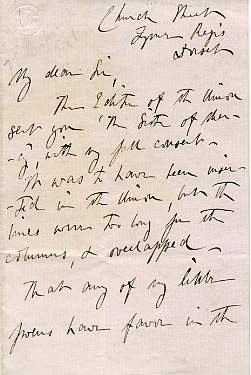 Church Street
Lyme Regis
Dorset
My dear Sir,
The Editor of the Union
sent you 'The Sister of
-y, with my full consent -
It was to have been inser
-ted in the Union, but the
lines were too long for the
columns, & overlapped -
That any of my little
poems have favor in the